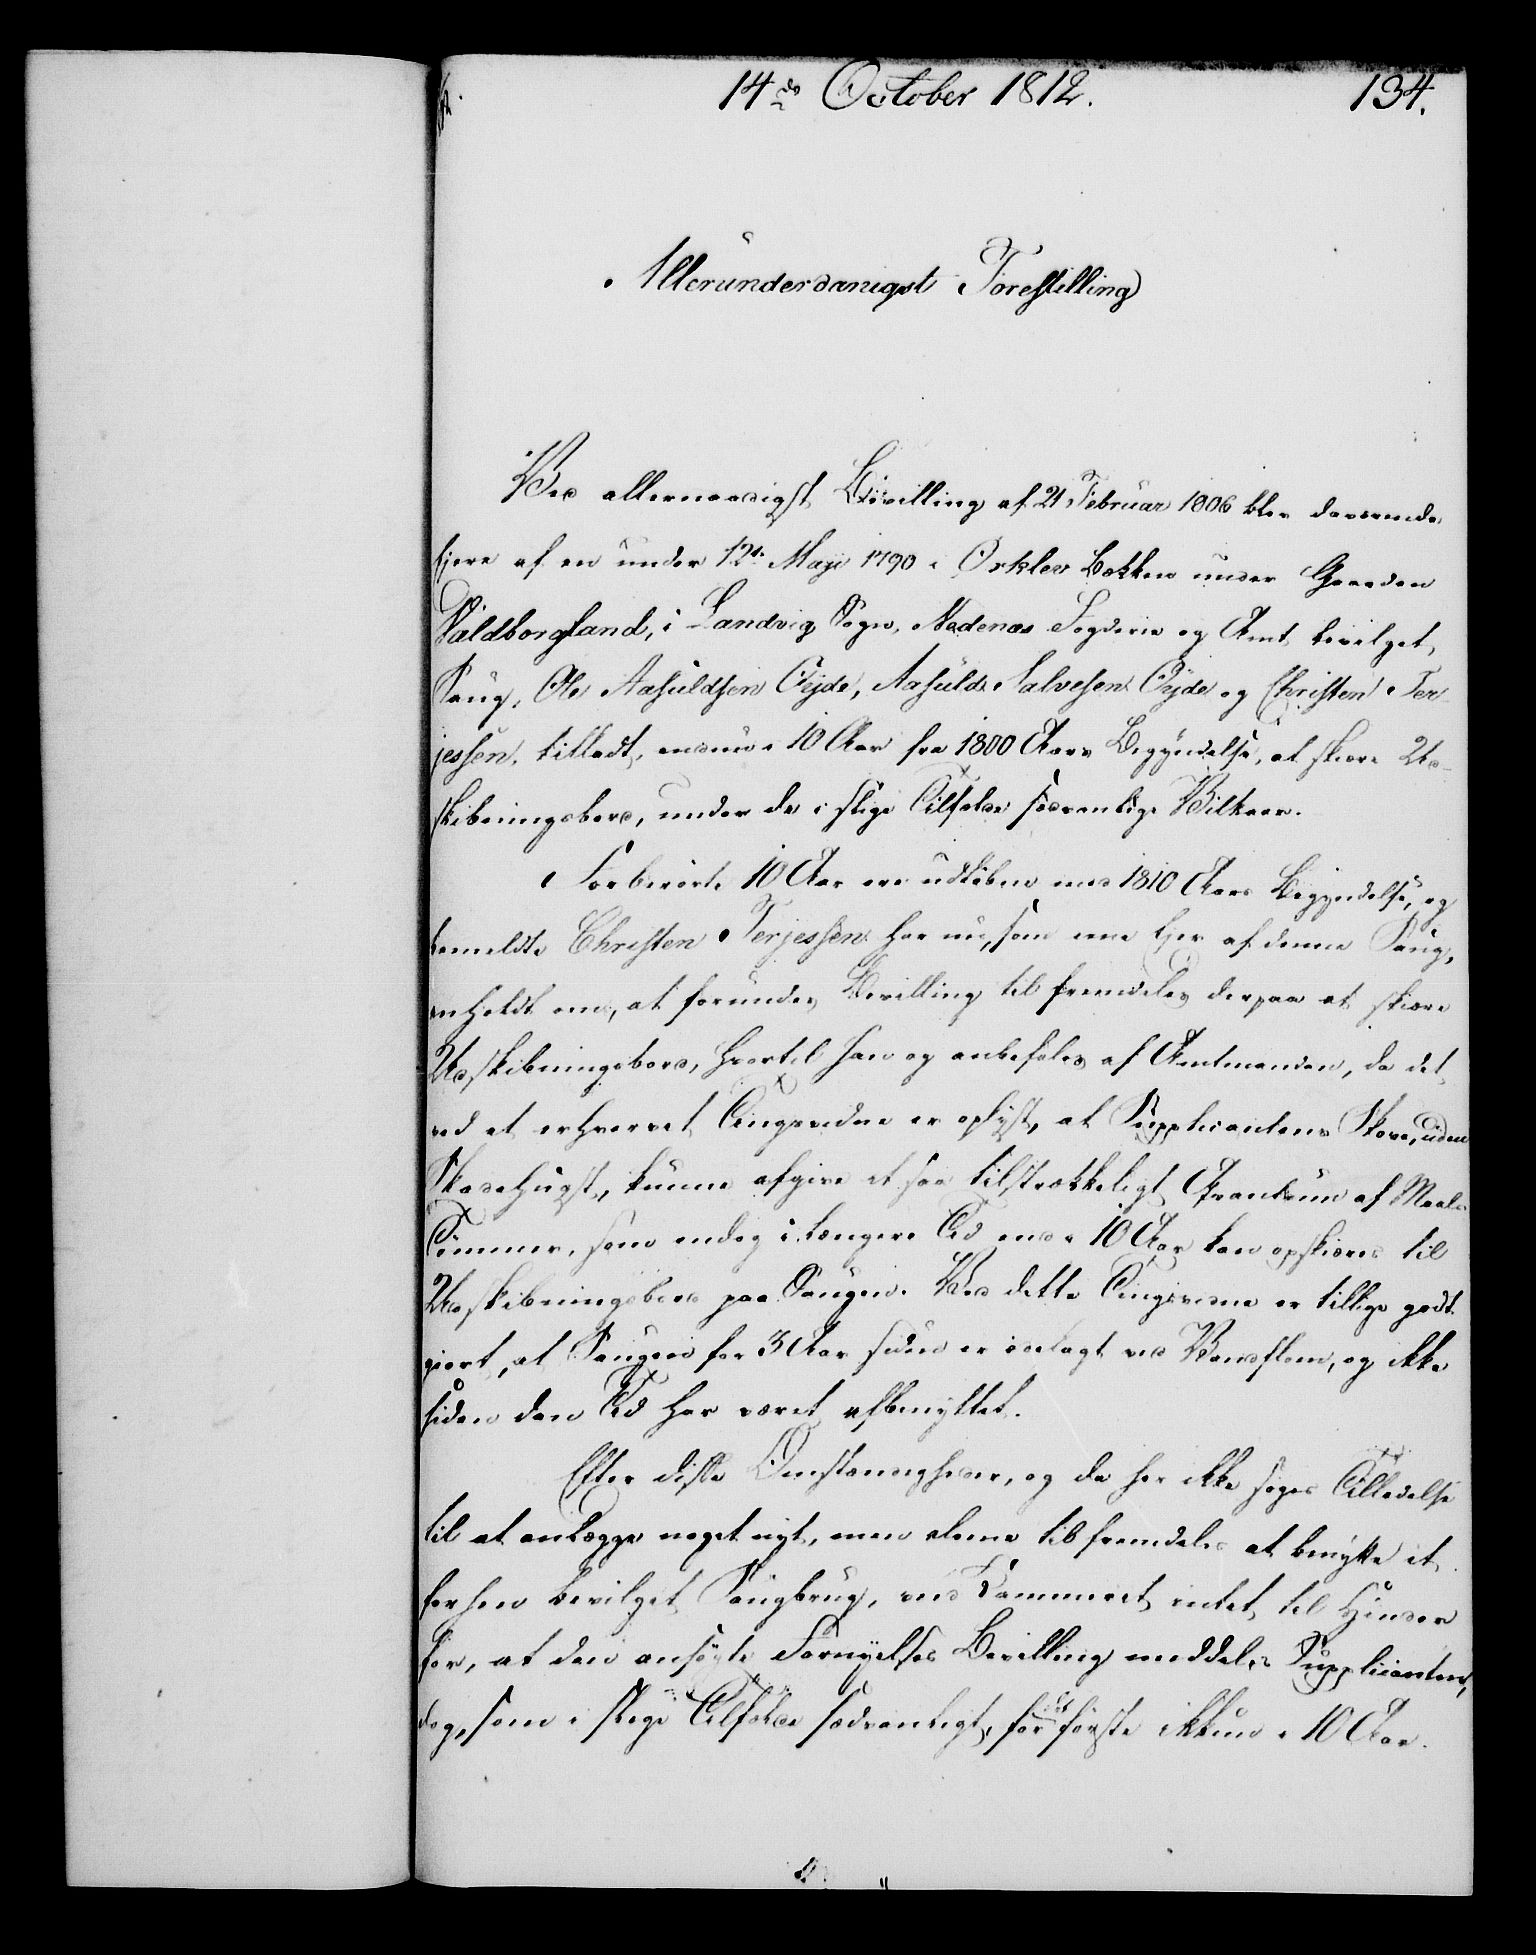 14de October 1812. 134.
Allerunderdanigst Forestilling
Ved allernaadigst Bevilling af 21 Februar 1806 blev daværende
Ejere af en under 12t. Maji 1790 i Ørklev Bekken under Gaarden
Valdborgland, i Landvig Sogn, Nedenæs Fogderie og Amt bevilget
Saug, Ole Aasuldsen Øyde, Aasuld Salvesen Øyde og Christen Ter-
jessen, tilladt, endnu i 10 Aar fra 1800 Aars Begyndelse, at skiære Ud-
skibningsbord, under de i slige Tilfælde sædvanlige Vilkaar.
Forberørte 10 Aar ere udløbne med 1810 Aars Begyndelse, og
bemeldte Christen Terjessen har nu, som ene Ejer af denne Saug,
anholdt om, at forundes Bevilling til fremdeles derpaa at skiære
Udskibningsbord, hvortil han og anbefales af Amtmanden, da det
ved et erhvervet Tingsvidne er oplyst, at Supplicantens Skove, uden
Skovehugst, kunne afgive et saa tilstrækkeligt Qvantum af Maale-
Tømmer, som endog i længere Tid end 10 Aar kan opskiæres til
Udskibningsbord paa Saugen. Ved dette Tingsvidne er tillige godt-
giort, at Saugen for 3 Aar siden er ødelagt ved Vandflom, og ikke
siden den Tid har været afbenyttet.
Efter disse Omstændigheder, og da her ikke søges Tilladelse
til at anlægge noget nyt, men alene til fremdeles at benytte et
forhen bevilget Saugbrug, veed Kammeret intet til Hinder
for, at den ansøgte Fornyelses Bevilling meddeles Supplicanten,
dog, som i slige Tilfælde sædvanligt, for det første ikkun i 10 Aar.